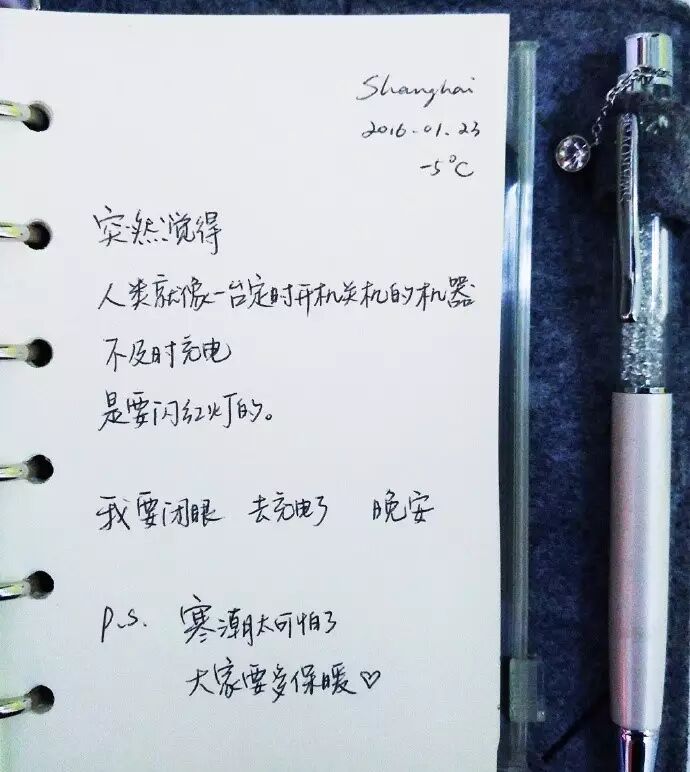 Shanghai
2016.01.23
-5°C
突然觉得
人类就像一台定时开机关机的机器
不及时充电
是要闪红灯的。
我要闭眼 去充电了 晚安
P.S. 寒潮太可怕了
大家要多保暖♡